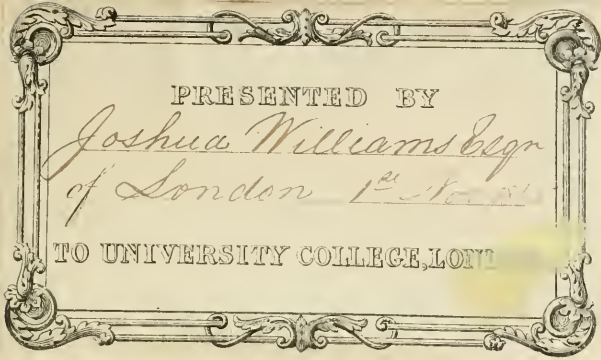 PRESENTED BY
Joshua Williams Esqr
of London 1st
TO UNIVERSITY COLLEGE,